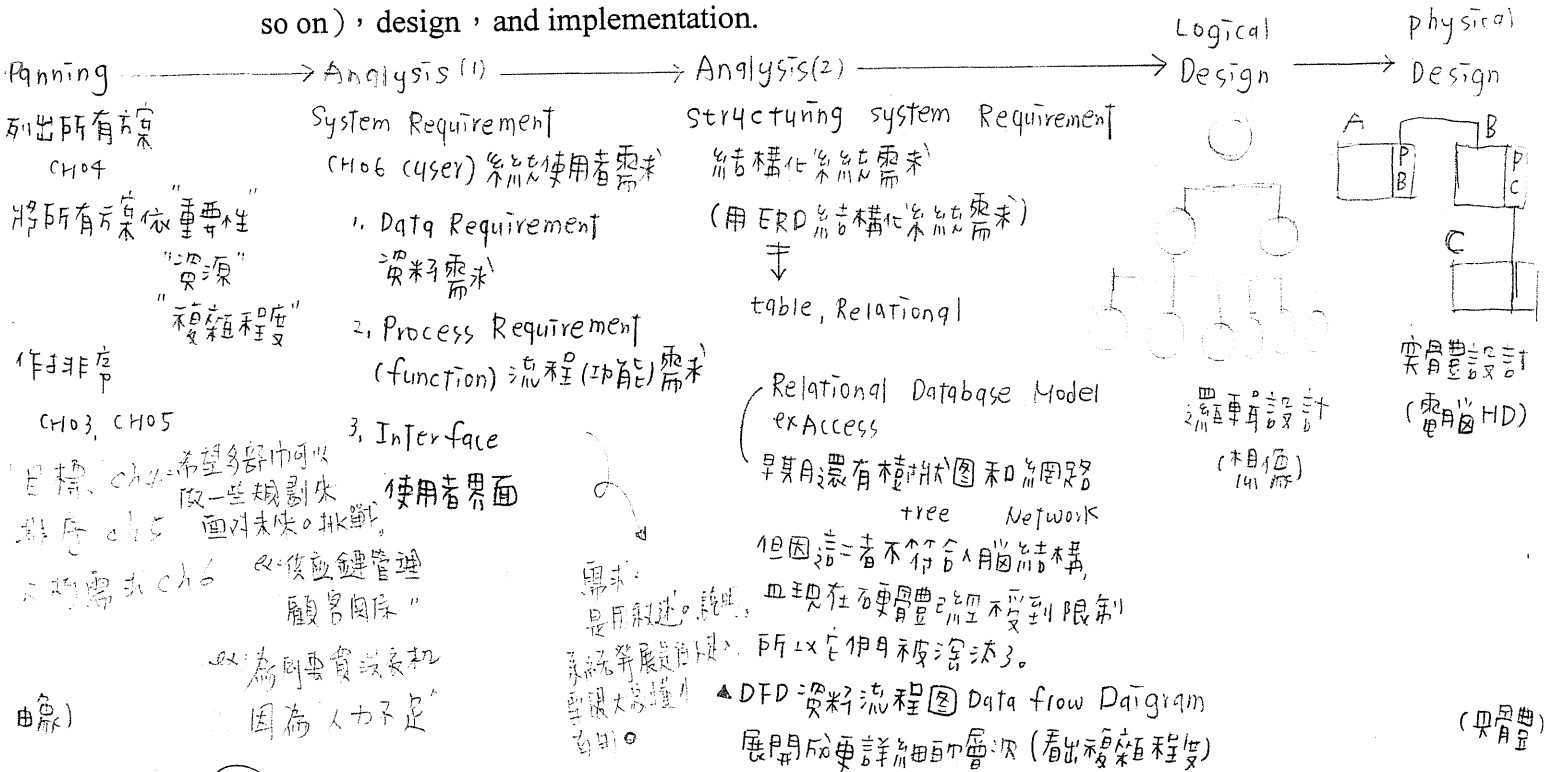 so on)，design，and implementation.
Panning → Analysis (1) → Analysis(2) → Logical Design → physical Design
列出所有方案
CH04
將所有方案依"重要性"
"資源"
"複雜程度"
作排序
CH03, CH05
目標、ch4
排序 ch5
需求 ch6
希望各部巾可以
做一些規劃來
面对未來。挑戰,
ex:供應鏈管理
顧客関係 "
ex:為何要買
因為人力不足
System Requirement
CH06 (user) 系統使用者需求
1, Data Requirement
資料需求
2, Process Requirement
(function) 流程(功能)需求
3, Interface
使用者界面
需求:
是用敘述。
structuring system Requirement
結構化系統需求
(用 ERD 結構化系統需求)
table, Relational
Relational Database Model
ex Access
早期還有樹狀图和網路
tree Network
但因這二者不符合人腦結構,
且現在硬體已經不受到限制
所以它們被淘汰了。
▲DFD 資料流程图 Data flow Daigram
展開成更詳細的層次 (看出複雜程度)
邏輯設計
(想像)
A B
P B
P C
C
實體設計
(電腦 HD)